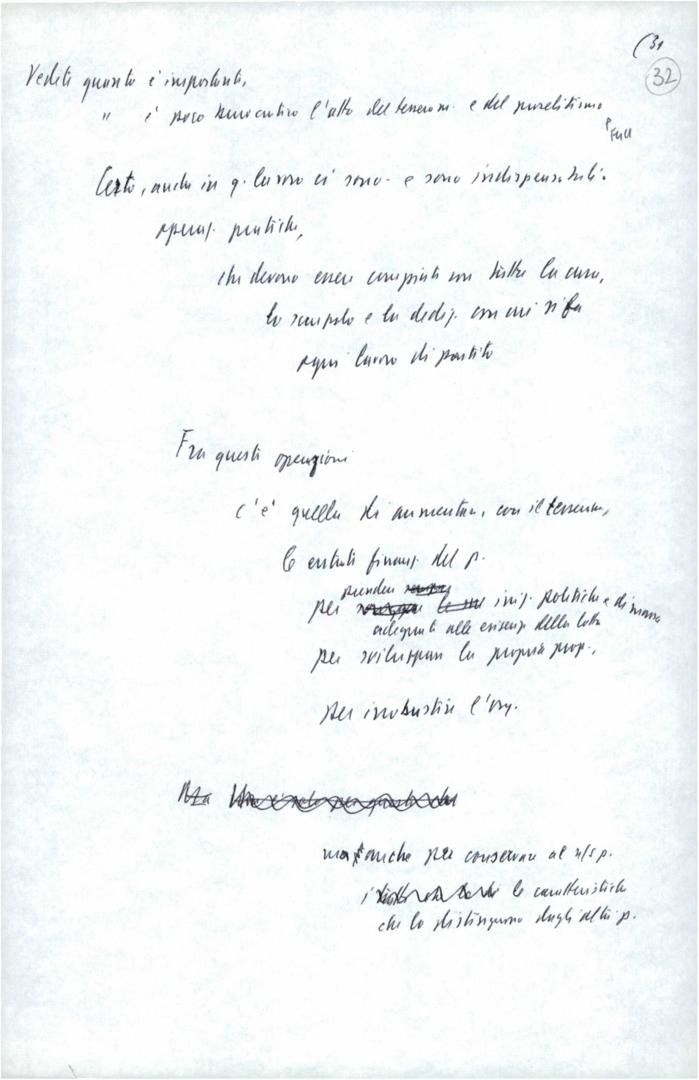 (31
32
Vedete quanto è importante,
" è poco burocratico l'atto del tesseram. e del proselitismo
e FGCI
Certo, anche in q. lavoro ci sono - e sono indispensabili -
operaz. pratiche,
che devono essere compiute con tutta la cura,
lo scrupolo e la dediz. con cui si fa
ogni lavoro di partito
Fra queste operazioni
c'è quella di aumentare, con il tesseram,
le entrate finanz. del p.
per prendere iniz. politiche e di massa
adeguate alle esigenze della lotta
per sviluppare la propria prop.,
per irrobustire l'org.
Ma
ma anche per conservare al n/s p.
le caratteristiche
che lo distinguono dagli altri p.